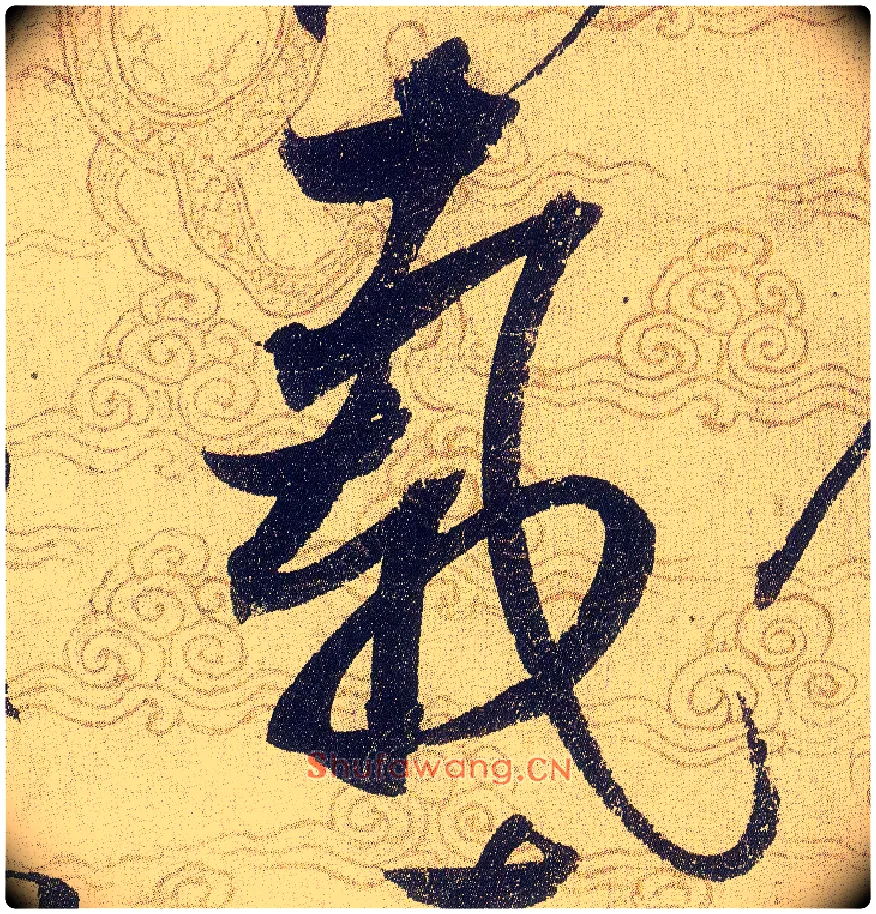 載
Shufawang.CN